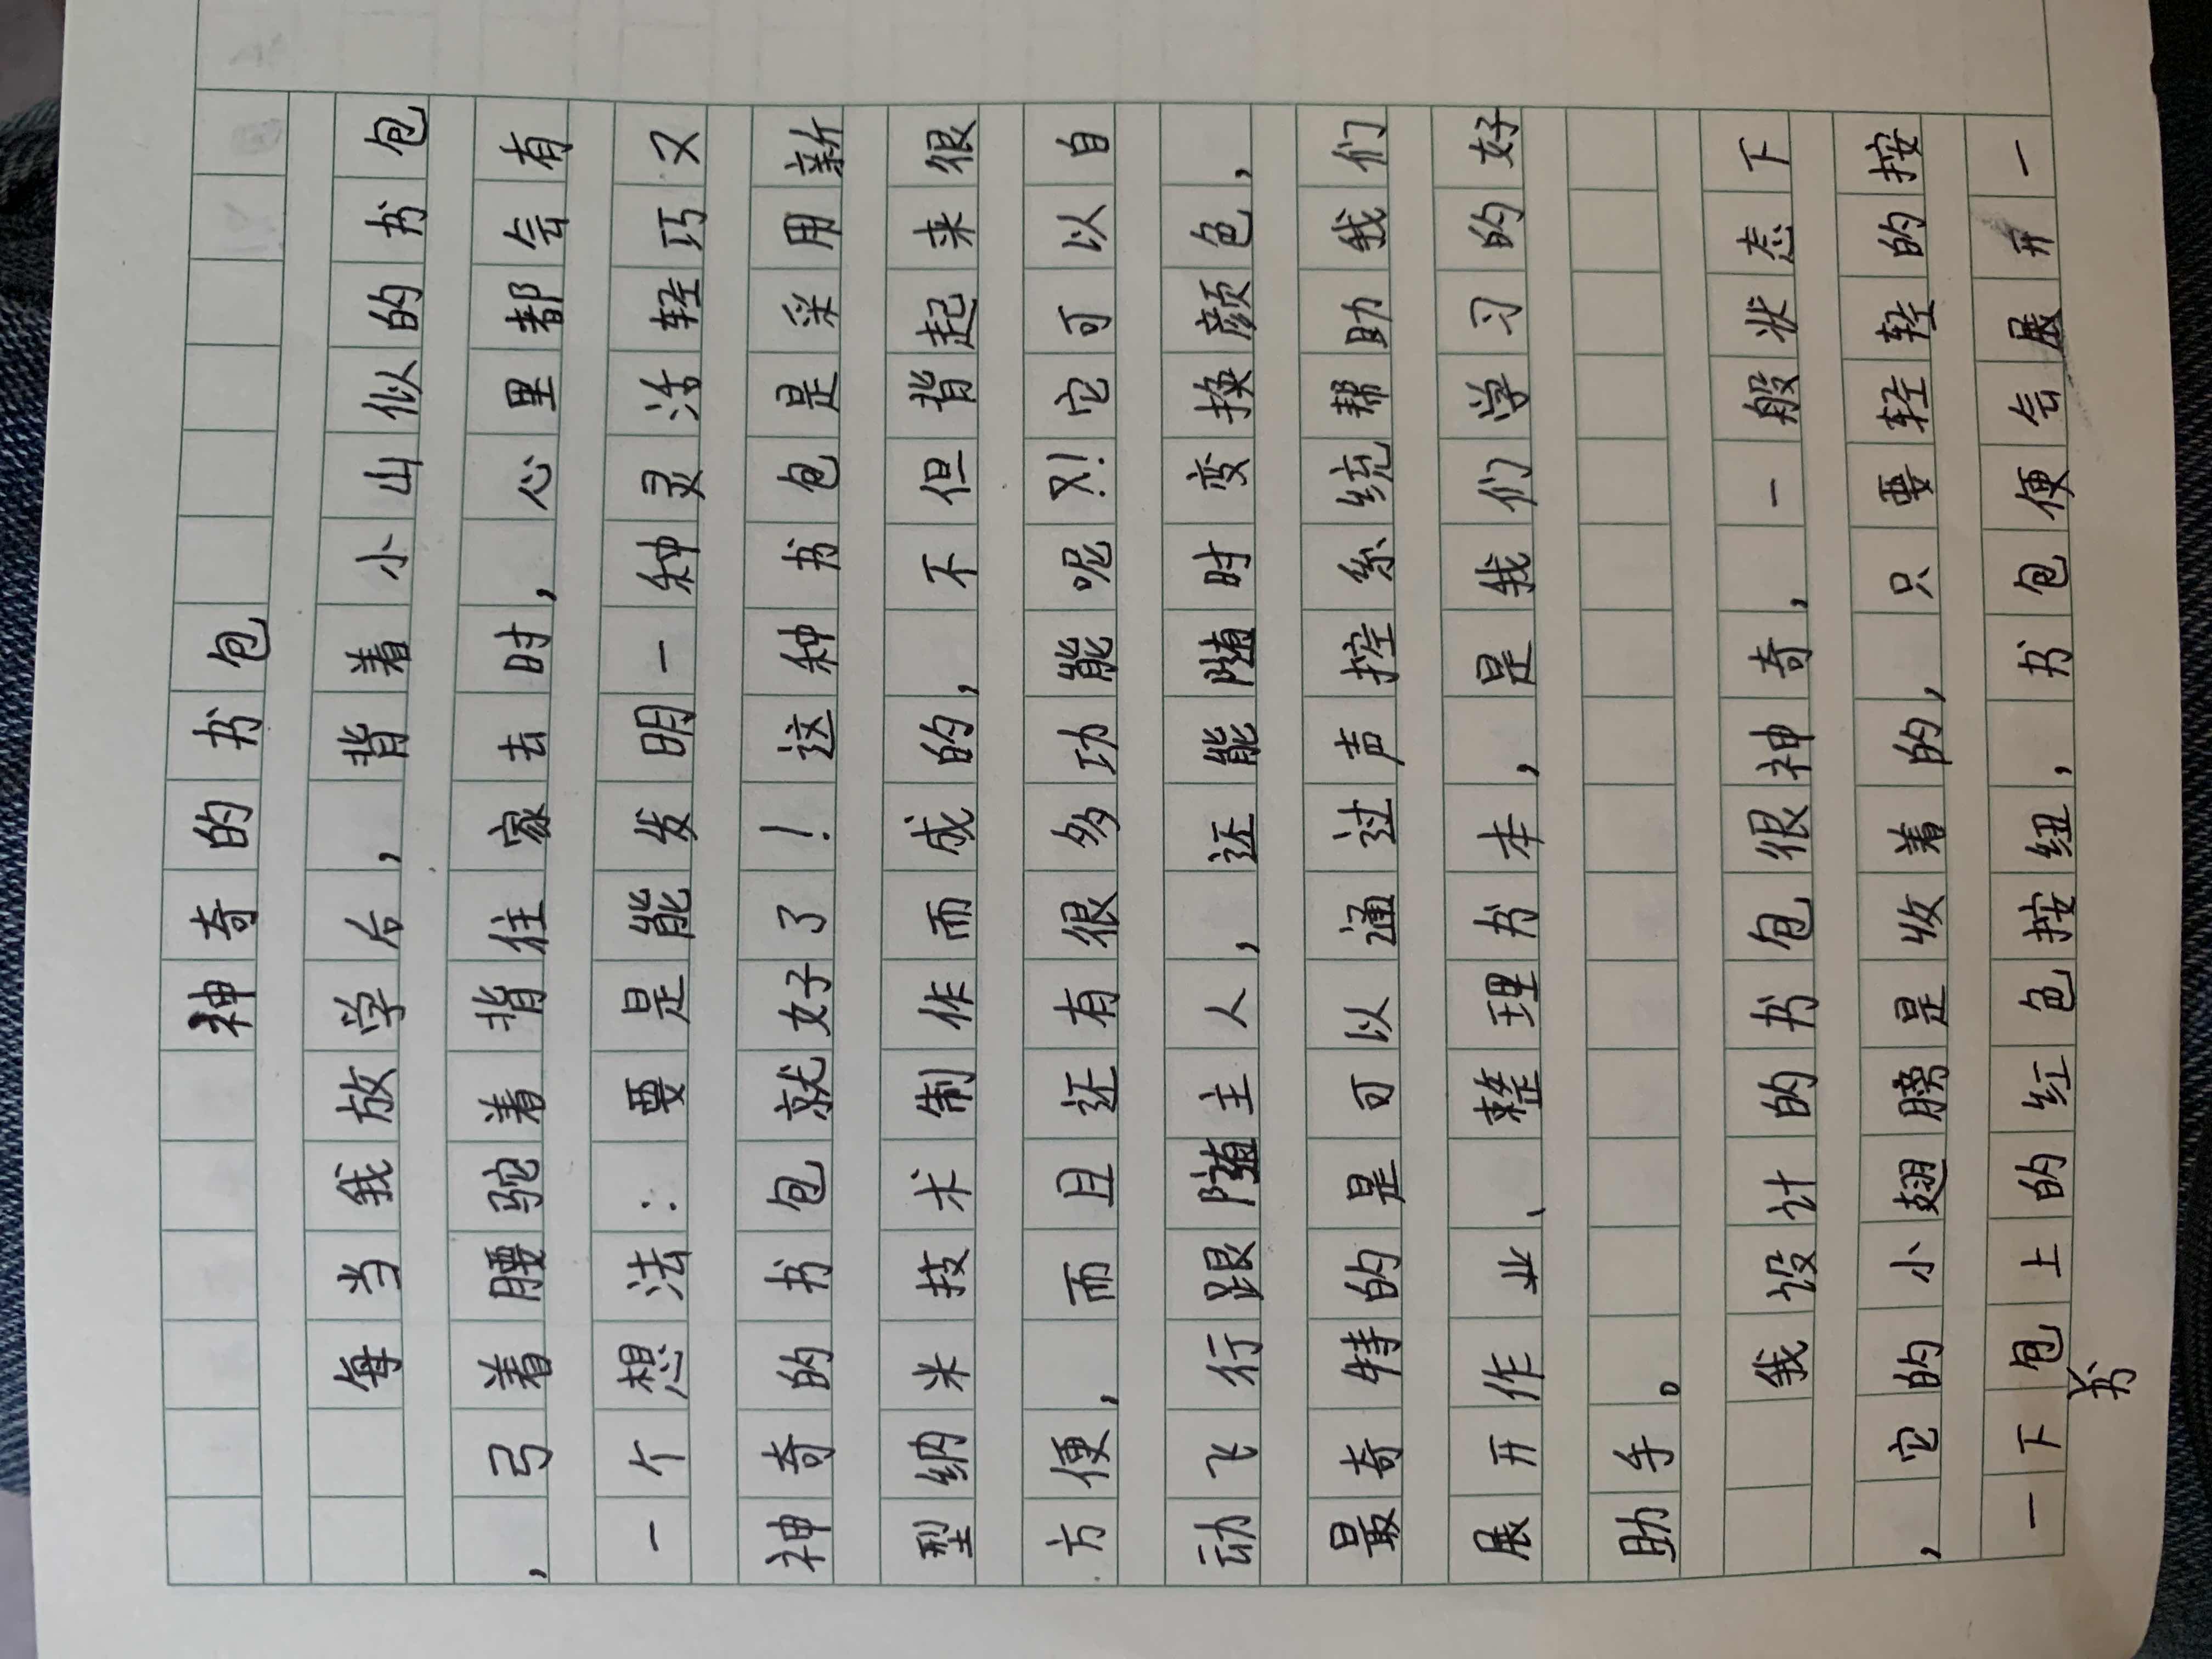 神奇的书包
每当我放学后，背着小山似的书包
，弓着腰驼着背往家去时，心里都会有
一个想法：要是能发明一种灵活轻巧又
神奇的书包就好了！这种书包是采用新
型纳米技术制作而成的，不但背起来很
方便，而且还有很多功能呢！它可以自
动飞行跟随主人，还能随时变换颜色，
最奇特的是可以通过声控系统帮助我们
展开作业、整理书本，是我们学习的好
助手。
我设计的书包很神奇，一般状态下
，它的小翅膀是收着的，只要轻轻的按
一下书包上的红色按纽，书包便会展开一